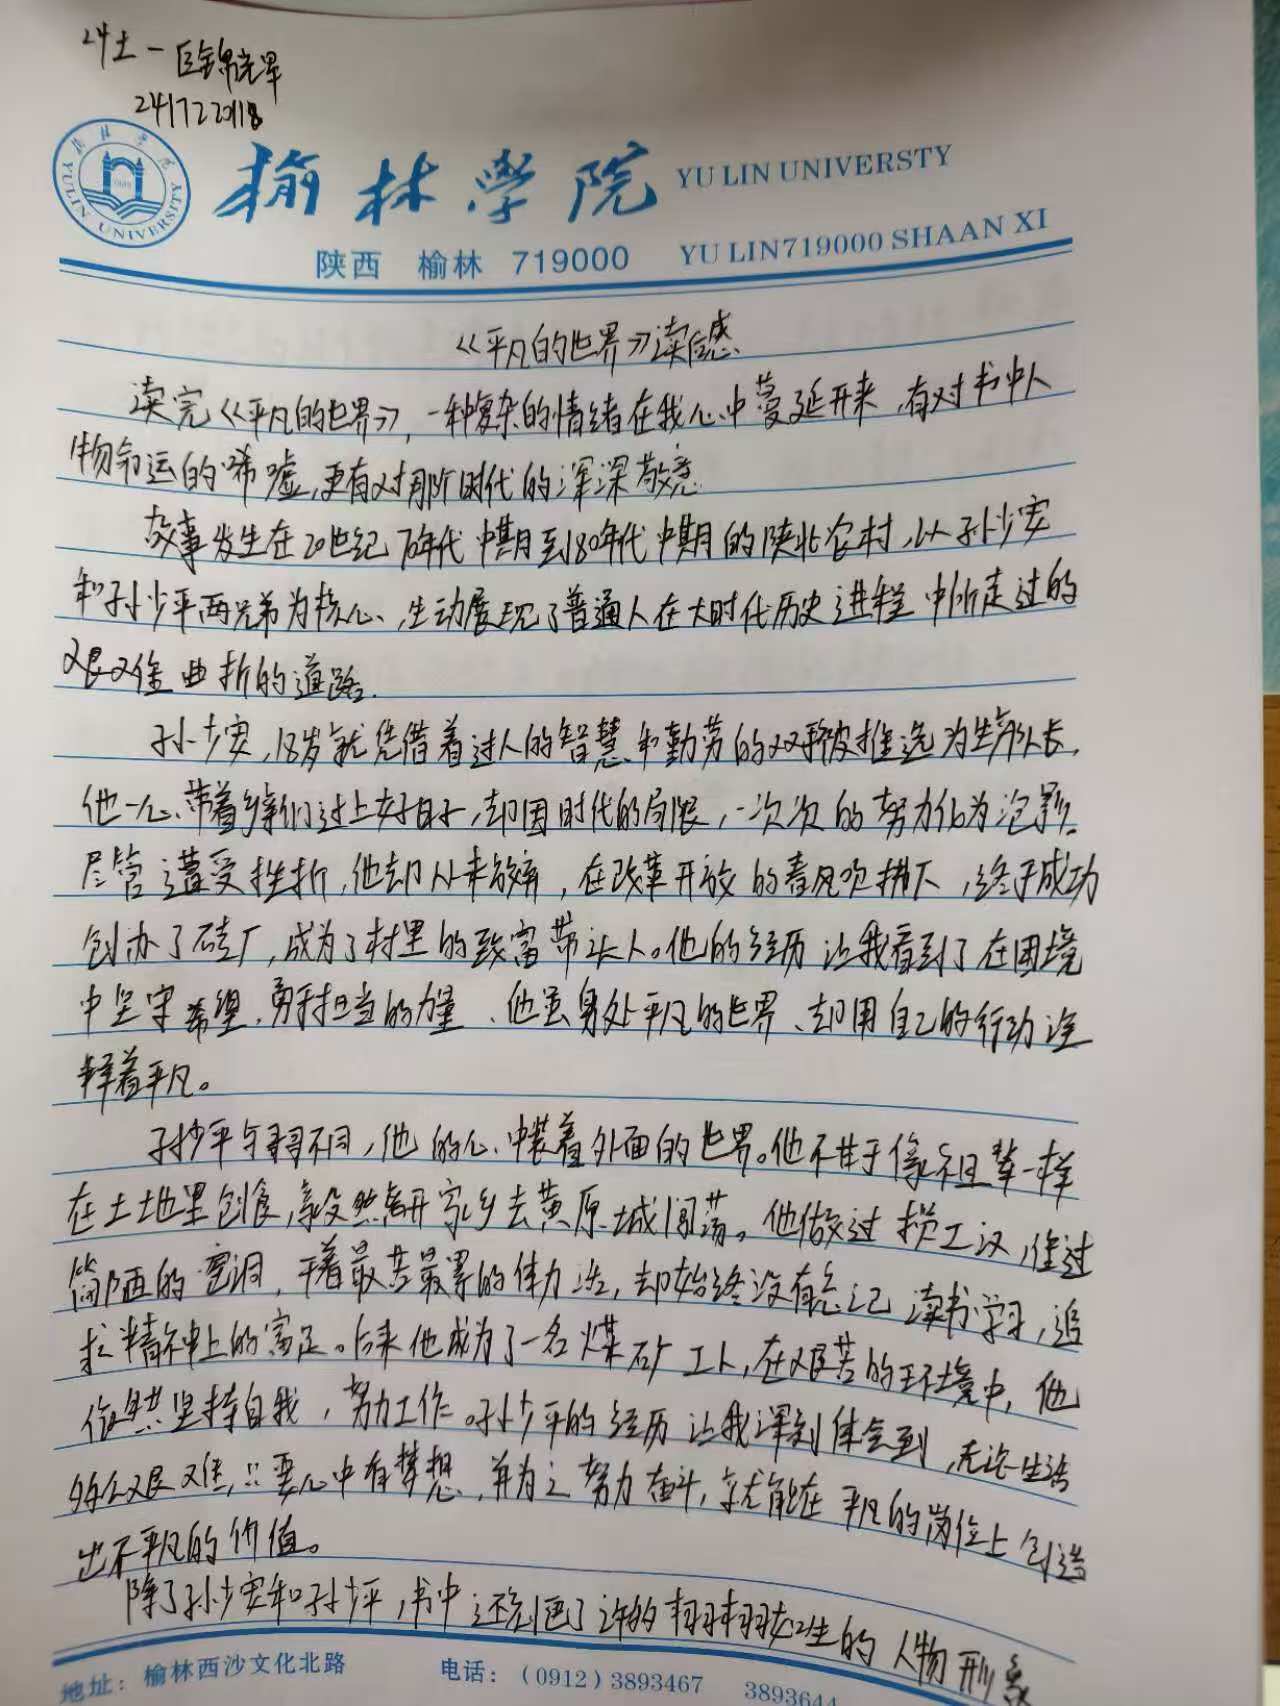 24土一 巨锦
241722018
榆林学院 YU LIN UNIVERSTY
YULIN UNIVERSITY
陕西 榆林 719000 YU LIN719000 SHAAN XI
《平凡的世界》读后感
读完《平凡的世界》，一种复杂的情绪在我心中蔓延开来，有对书中人
物命运的唏嘘，更有对那阶时代的深深敬意
故事发生在20世纪70年代中期到80年代中期的陕北农村，以孙少安
和孙少平两兄弟为核心，生动展现了普通人在大时代历史进程中所走过的
艰难曲折的道路.
孙少安，18岁就凭借着过人的智慧和勤劳的双手被推选为生产队长，
他一心带着乡亲们过上好日子，却因时代的局限，一次次的努力化为泡影.
尽管遭受挫折，他却从未放弃，在改革开放的春风吹拂下，终于成功
创办了砖厂，成为了村里的致富带头人。他的经历让我看到了在困境
中坚守希望、勇于担当的力量、他虽身处平凡的世界、却用自己的行动诠
释着平凡。
孙少平与哥哥不同，他的心中装着外面的世界。他不甘于像祖辈一样
在土地里刨食，毅然离开家乡去黄原城闯荡。他做过揽工汉，住过
简陋的窑洞，干着最苦最累的体力活，却始终没有忘记读书学习，追
求精神上的富足。后来他成为了一名煤矿工人，在艰苦的环境中，他
依然坚持自我，努力工作。孙少平的经历让我深刻体会到，无论生活
多么艰难，只要心中有梦想，并为之努力奋斗，就能在平凡的岗位上创造
出不平凡的价值。
除了孙少安和孙少平，书中还刻画了许多的栩栩如生的人物形象
地址：榆林西沙文化北路 电话：(0912)3893467 3893644